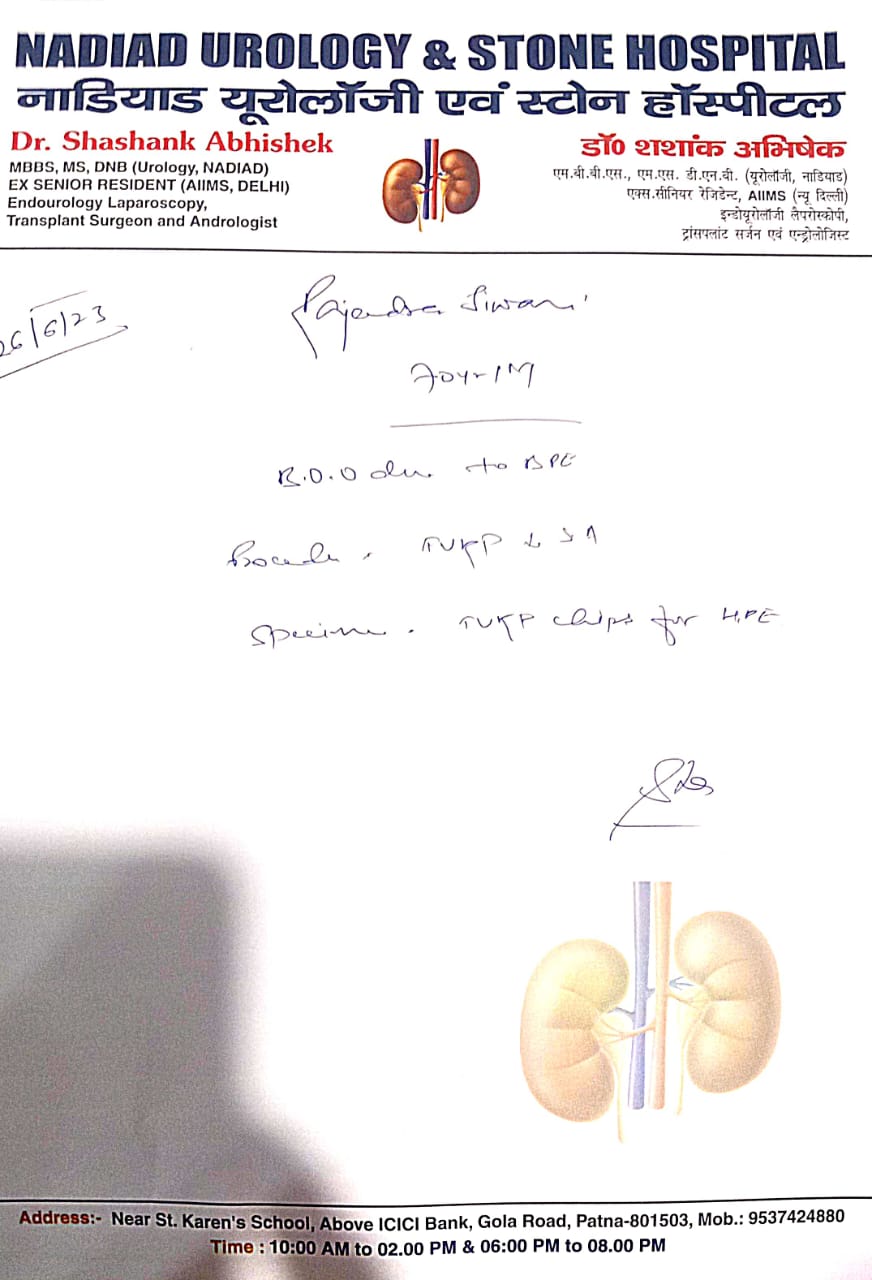 NADIAD UROLOGY & STONE HOSPITAL
नाडियाड यूरोलॉजी एवं स्टोन हॉस्पीटल
Dr. Shashank Abhishek
MBBS, MS, DNB (Urology, NADIAD)
EX SENIOR RESIDENT (AIIMS, DELHI)
Endourology Laparoscopy,
Transplant Surgeon and Andrologist
डॉ० शशांक अभिषेक
एम.बी.बी.एस., एम.एस. डी.एन.बी. (यूरोलॉजी, नाडियाड)
एक्स.सीनियर रेजिडेन्ट, AIIMS (न्यू दिल्ली)
इन्डोयूरोलॉजी लैपरोस्कोपी,
ट्रांसप्लांट सर्जन एवं एन्ड्रोलोजिस्ट
26/6/23
Rajendra
70yr/M
B.O.O due to BPE
Procedure. TURP
Specimen. TURP chips for HPE
Address:- Near St. Karen's School, Above ICICI Bank, Gola Road, Patna-801503, Mob.: 9537424880
Time : 10:00 AM to 02.00 PM & 06:00 PM to 08.00 PM